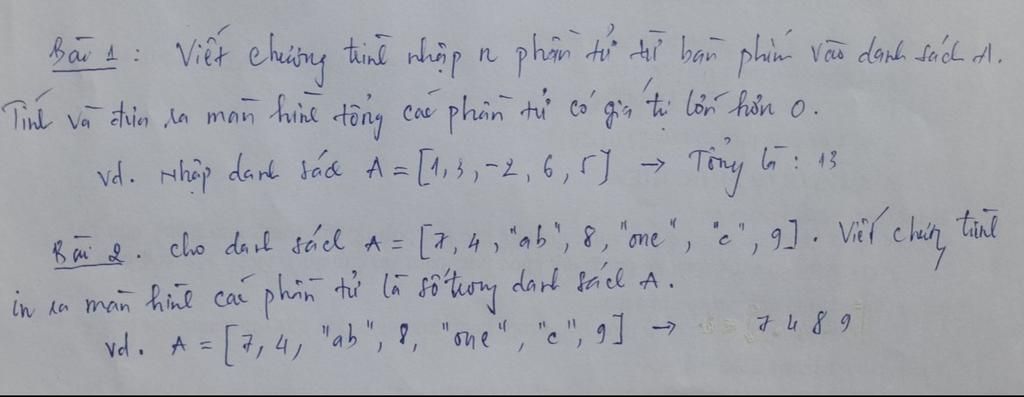 Bài 1: Viết chương trình nhập n phần tử từ bàn phím vào danh sách A.
Tính và đưa ra màn hình tổng các phần tử có giá trị lớn hơn 0.
vd. Nhập danh sách A = [1, 3, -2, 6, 5] → Tổng là: 13
Bài 2. cho danh sách A = [7, 4, "ab", 8, "one", "c", 9]. Viết chương trình
in ra màn hình các phần tử là số trong danh sách A.
vd. A = [7, 4, "ab", 8, "one", "c", 9] → 7 4 8 9